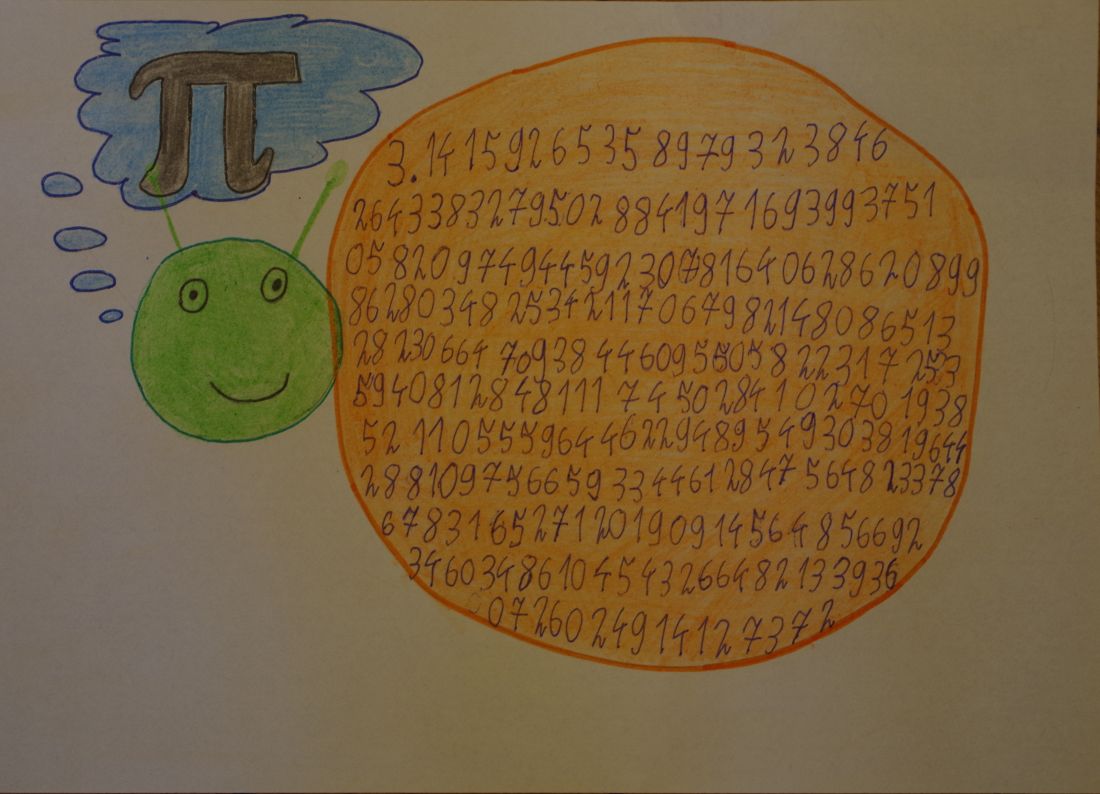 π
3.14159265358979323846
26433832795028841971693993751
0582097494459230781640628620899
8628034825342117067982148086513
2823066470938446095505822317253
59408128481117450284102701938
5211055596446229489549303819644
2881097566593344612847564823378
678316527120190914564856692
34603486104543266482133936
0726024914127372